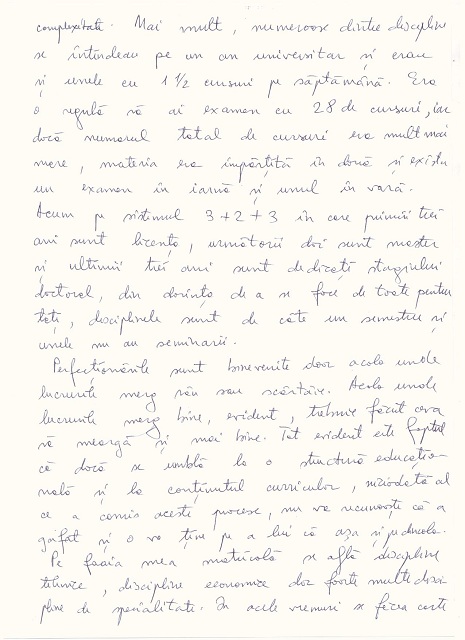 complexitate. Mai mult, numeroase dintre discipline
se întindeau pe un an universitar și erau
și unele cu 1 1/2 cursuri pe săptămână. Era
o regulă să ai examen cu 28 de cursuri, iar
dacă numărul total de cursuri era mult mai
mare, materia era împărțită în două și exista
un examen în iarnă și unul în vară.
Acum pe sistemul 3+2+3 în care primii trei
ani sunt licență, următorii doi sunt master
și ultimii trei ani sunt dedicați stagiului
doctoral, din dorința de a se face de toate pentru
toți, disciplinele sunt de câte un semestru și
unele nu au seminarii.
Perfecționările sunt binevenite doar acolo unde
lucrurile merg rău sau scârțâie. Acolo unde
lucrurile merg bine, evident, trebuie făcut ceva
să meargă și mai bine. Tot evident este faptul
că dacă se umblă la o structură educațio-
nală și la conținutul curricular, niciodată al
ce a comis aceste procese, nu va recunoaște că a
gafat și o va ține pe a lui că așa și pe dincolo.
Pe foaia mea matricolă se află discipline
tehnice, discipline economice dar foarte multe disci-
pline de specialitate. În acele vremuri se făcea carte